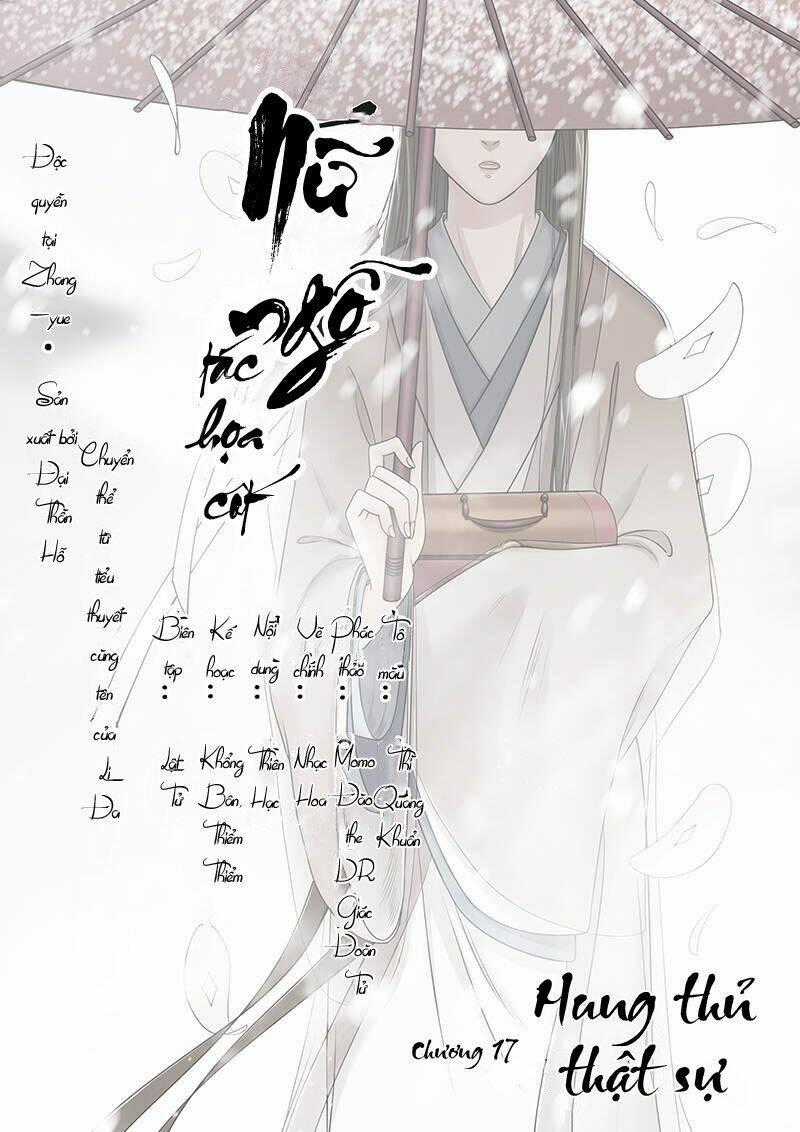 Nữ
ngỗ
tác
họa
cốt
Độc
quyền
tại
Zhang
-yue
•
Sản
xuất bởi
Đại
Thần
Hỗ
Chuyển
thể
từ
tiểu
thuyết
cùng
tên
của
Li
Đa
Biên
tập
:
Lật
Tử
Kế
hoạc
:
Khổng
Bân,
Thiểm
Thiểm
Nội
dung
:
Thiên
Hạc
Vẽ
chính
:
Nhạc
Hoa
Phác
thảo
:
Momo
Đào
the
DR
Giác
Đoàn
Tử
Tô
màu
:
Thì
Quáng
Khuẩn
Chương 17
Hung thủ
thật sự